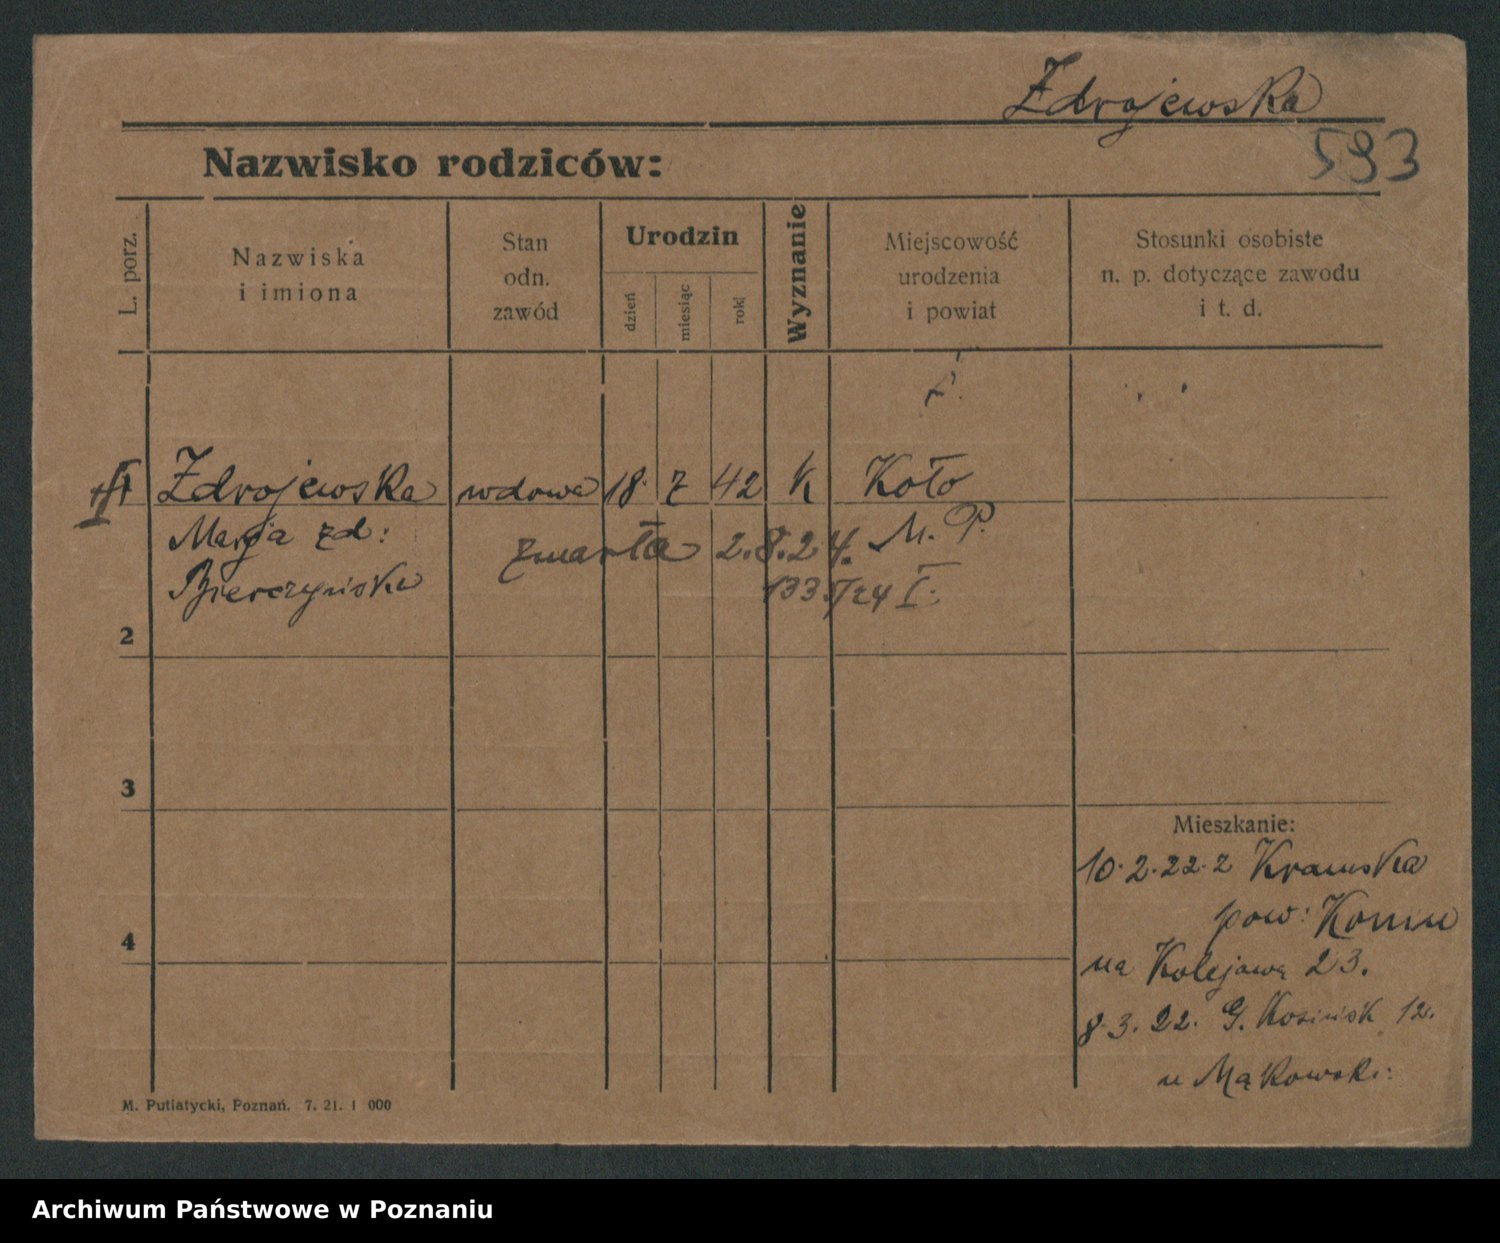 Zdrojewska
593
Nazwisko rodziców:
L. porz.
Nazwiska
i imiona
Stan
odn.
zawód
Urodzin
dzień
miesiąc
rok
Wyznanie
Miejscowość
urodzenia
i powiat
Stosunki osobiste
n. p. dotyczące zawodu
i t. d.
Zdrojewska wdowa 18 7 42 k Koło
Marja zd: M. P.
zmarła 2.8.24.
Bierczyńska
24 I.
2
3
4
Mieszkanie:
10.2.22 z Kramska
pow: Konin
na Kolejową 23.
8.3.22. G. Kosińsk 12.
u Mąkowski:
M. Putiatycki, Poznań. 7. 21. 1 000
Archiwum Państwowe w Poznaniu